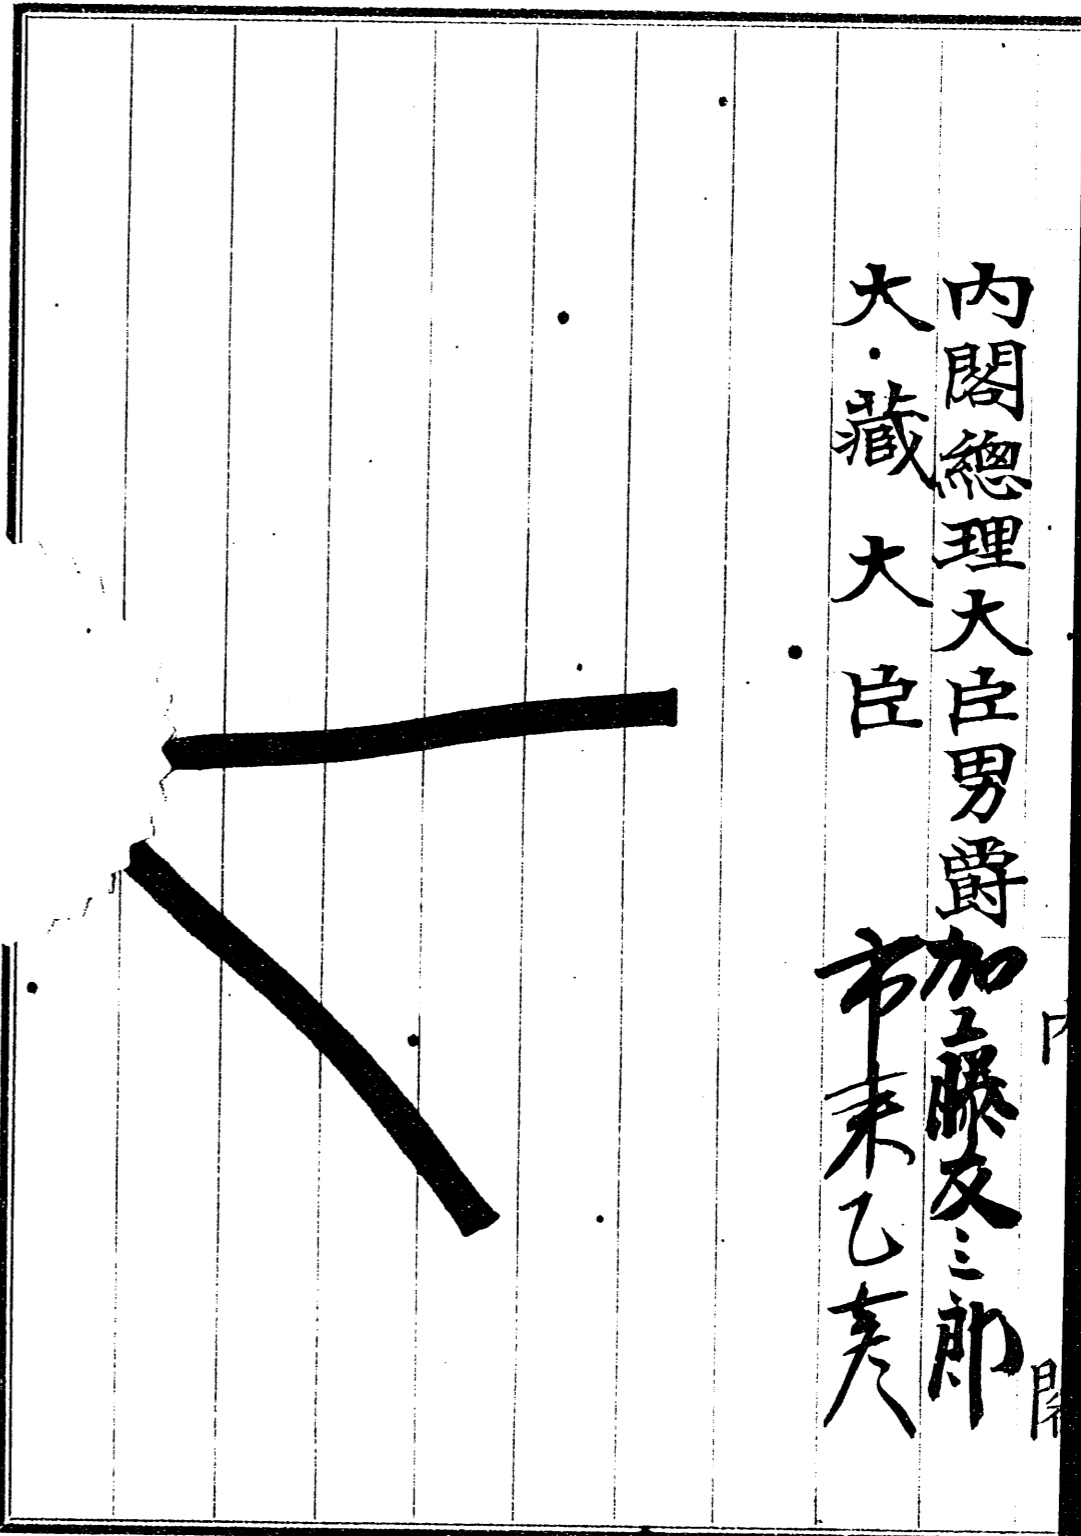 內閣總理大臣男爵加藤友三郎
大藏大臣 市来乙彦
內閣